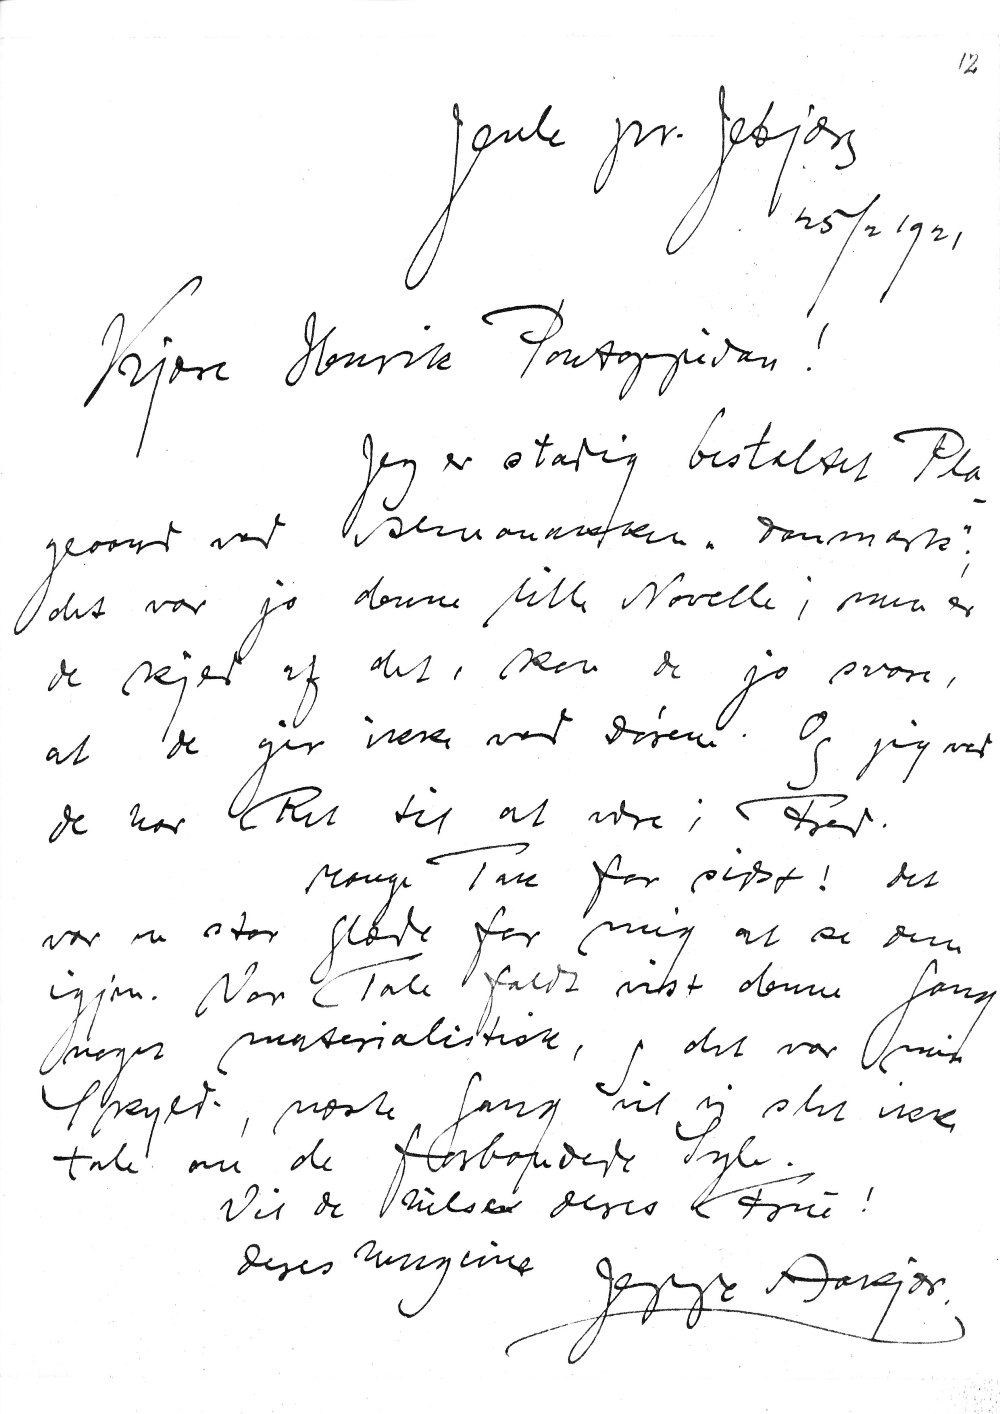 12
Jenle pr. Jebjærg
25/2 1921
Kjære Henrik Pontoppidan!
Jeg er stadig bestaltet Pla-
geaand ved Almanakken „Danmark";
det var jo denne lille Novelle; men er
De kjed af det, kan De jo svare,
at De gir ikke ved Dørene. Og jeg ved
De har Ret til at være i Fred.
Mange Tak for sidst! Det
var en stor Glæde for mig at se Dem
igjen. Vor Tale faldt vist denne Gang
noget materialistisk, og det var min
Skyld; næste Gang vil vi slet ikke
tale om de forbandede Svin.
Vil De hilse Deres Frue!
Deres hengivne Jeppe Aakjær.